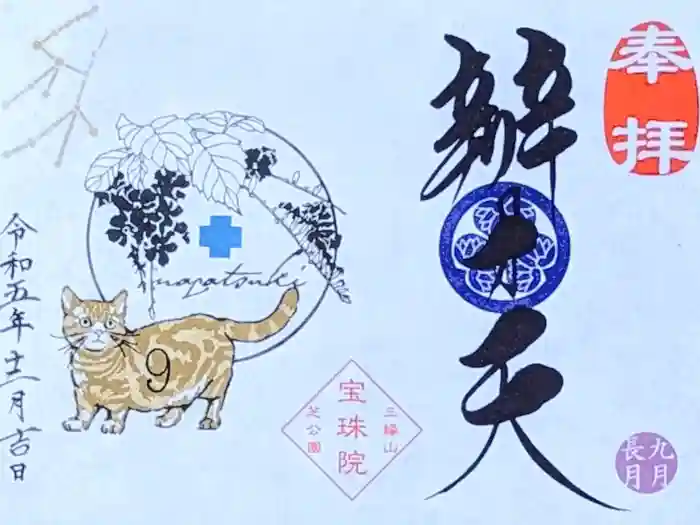 奉拝
辨才天
九月
長月
三縁山
宝珠院
芝公園
nagatsuki
9
令和五年十一月吉日